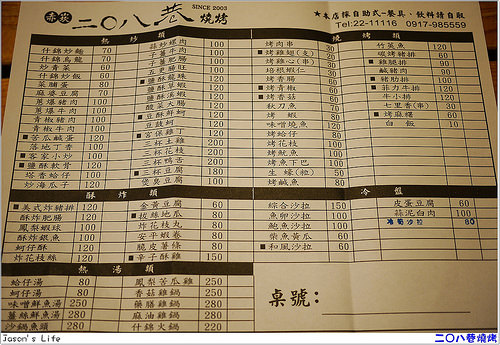 赤崁 二〇八巷 燒烤
SINCE 2003
★本店採自助式-餐具、飲料請自取
Tel:22-11116 0917-985559
熱炒類
燒烤類
什錦炒麵 70
什錦烏龍 70
炒青菜 60
什錦炒飯 60
菜脯蛋 80
麻婆豆腐 100
蔥爆豬肉 100
蔥爆牛肉 100
青椒豬肉 100
青椒牛肉 100
■苦瓜鹹蛋 120
落地丁香 100
■客家小炒 100
■鹽酥軟骨 120
塔香蛤仔 100
炒海瓜子 120
蒜炒螺肉 100
鹽酥龍珠
鹽酥草蝦
鹽酥溪蝦
酸菜大腸
■豆酥鮮蚵
豆豉蚵
■宮保雞丁 120
三杯中卷
三杯花枝
三杯鴨舌
■三杯豆腐 180
煲臭豆腐 100
烤肉串 30
■烤雞翅(支) 20
■烤雞心(串) 30
培根蝦仁 30
烤香腸 30
■烤香菇 60
秋刀魚 70
烤蝦 80
味噌燒魚 120
烤蛤仔 80
烤花枝 100
烤魷魚 100
烤魚下巴 100
生蠔(粒) 50
烤鹹魚 80
竹筴魚 120
碳烤豬排 60
■雞腿排 90
鹹豬肉 90
■豬肋排 100
■菲力牛排 120
牛小排 120
七里香(串) 30
■烤麻糬 60
白飯 10
酥炸類
■美式炸豬排 120
酥炸肥腸 120
鳳梨蝦球 100
酥炸銀魚 100
蚵仔酥 120
炸花枝絲 120
金黃豆腐 60
■拔絲地瓜 80
炸花枝丸 80
安平蝦卷 80
脆皮薯條 80
■辛子酥雞 150
冷盤
綜合沙拉 150
魚卵沙拉 100
鮑魚沙拉 100
柴魚黃瓜 60
■和風沙拉 60
皮蛋豆腐 60
蒜泥白肉 100
涼筍沙拉 80
熱湯類
蛤仔湯 80
蚵仔湯 80
味噌鮮魚湯 250
薑絲鮮魚湯 250
沙鍋魚頭 280
鳳梨苦瓜雞 250
香菇雞鍋 250
藥膳雞鍋 280
麻油雞鍋 280
什錦火鍋 220
桌號：
Jason's Life
二〇八巷燒烤